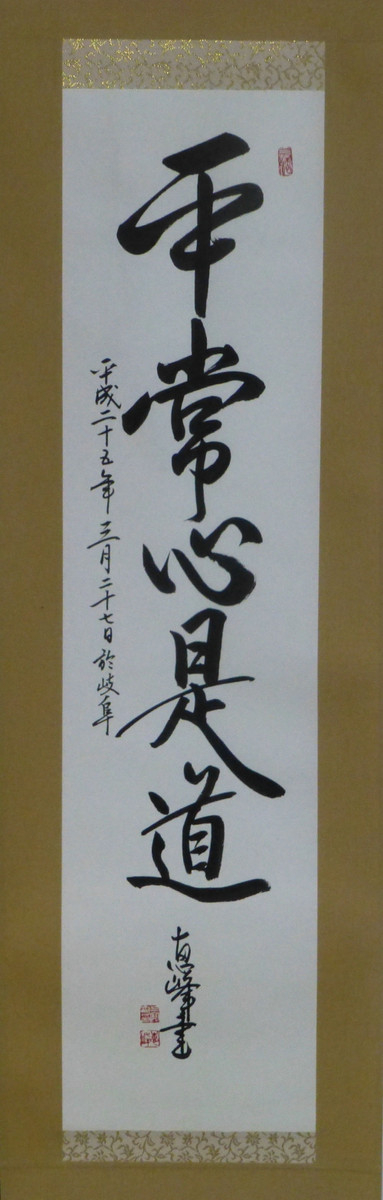 平常心是道
平成二十五年三月二十七日於岐阜
恵峰書